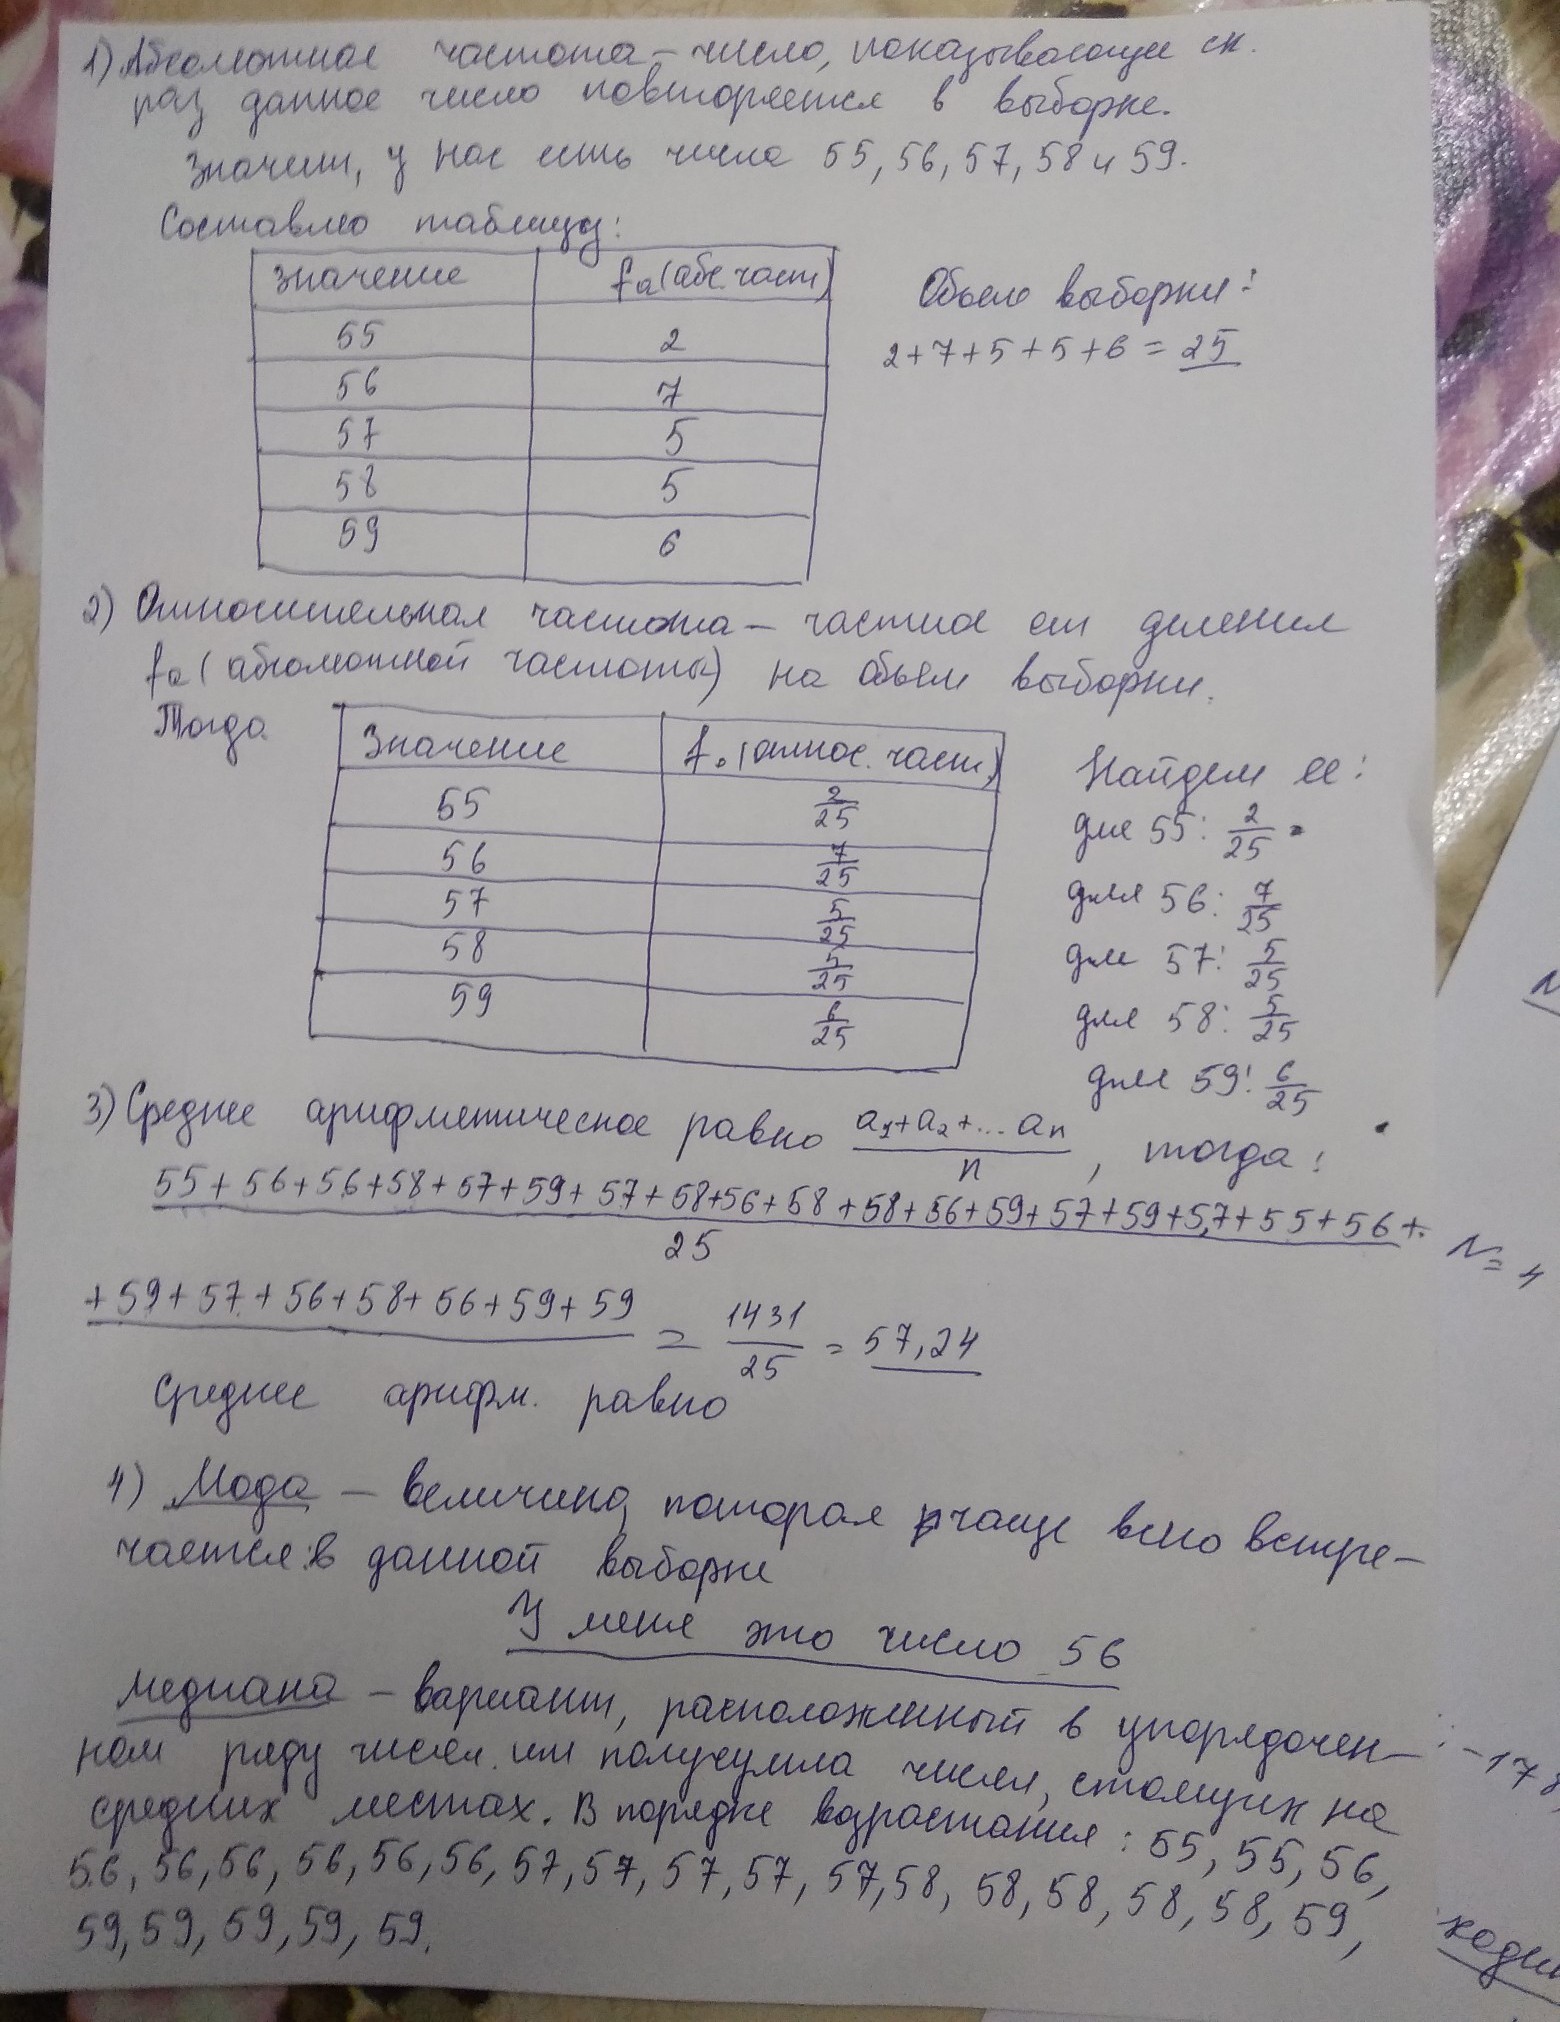 1) Абсолютная частота – число, показывающее ск.
раз данное число повторяется в выборке.
Значит, у нас есть числа 55, 56, 57, 58 и 59.
Составлю таблицу:
Значение fa (абс. част)
55 2
56 7
57 5
58 5
59 6
Обьем выборки:
2+7+5+5+6 = 25
2) Относительная частота – частное от деления
fa (абсолютной частоты) на обьем выборки.
Тогда
Значение f₀ (относ. част.)
55 2/25
56 7/25
57 5/25
58 5/25
59 6/25
Найдем ее:
для 55: 2/25
для 56: 7/25
для 57: 5/25
для 58: 5/25
для 59: 6/25
3) Среднее арифметическое равно (a₁+a₂+...aₙ)/n, тогда:
55+56+56+58+57+59+57+58+56+58+58+56+59+57+59+57+55+56+
25
+59+57+56+58+56+59+59 = 1431/25 = 57,24
Среднее арифм. равно
4) Мода – величина, которая чаще всего встре-
чается в данной выборке
У меня это число 56
Медиана – вариант, расположенный в упорядочен-
ном ряду чисел или полусумма чисел, стоящих на
средних местах. В порядке возрастания: 55, 55, 56,
56, 56, 56, 56, 56, 56, 57, 57, 57, 57, 57, 58, 58, 58, 58, 58, 59,
59, 59, 59, 59, 59.
N = 4
-178,